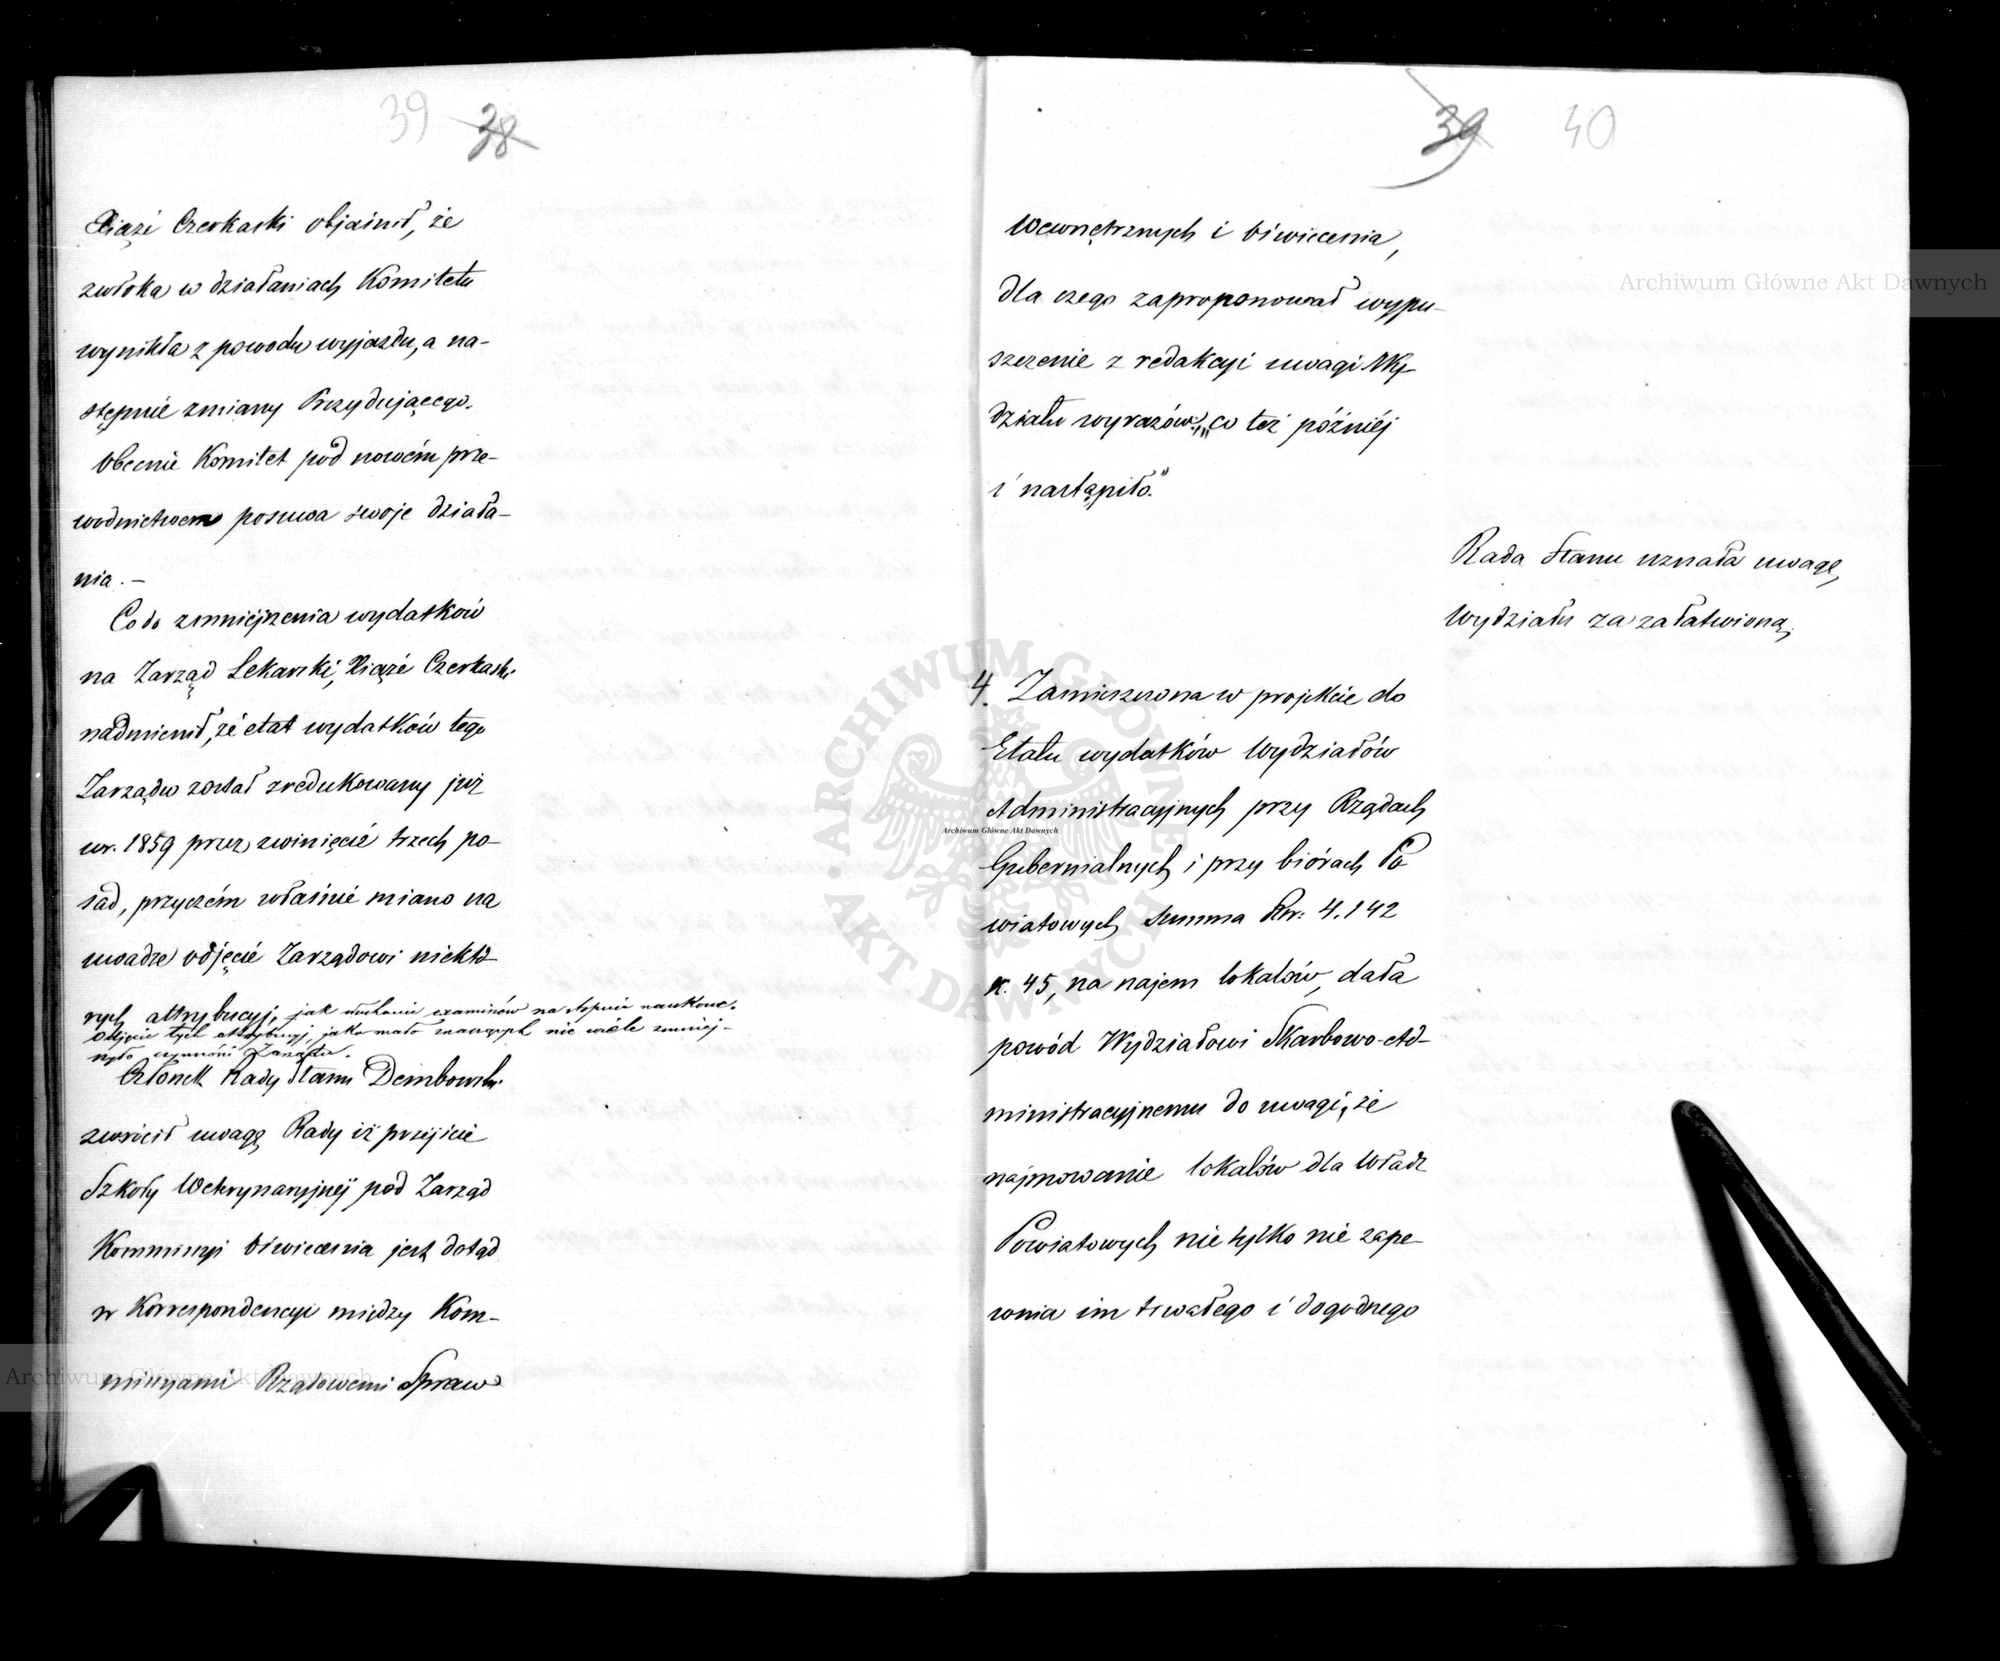 39 38
Xiążę Czerkaski objaśnił, że
zwłoka w działaniach Komitetu
wynikła z powodu wyjazdu, a na-
stępnie zmiany Prezydującego.
Obecnie Komitet pod nowém prze-
wodnictwem posuwa swoje działa-
nia. –
Co do zmniéjszenia wydatków
na Zarząd Lekarski, Xiążę Czerkaski
nadmienił, że etat wydatków tego
Zarządu został zredukowany już
w r. 1859 przez zwinięcie trzech po-
sad, przyczém właśnie miano na
uwadze odjęcie Zarządowi niektó-
rych attrybucyj, jak słuchanie examinów na stopnie naukowe.
Odjęcie tych attrybucyj, jako mało znaczących nie wiele zmniej-
szyło czynności Zarządu.
Członek Rady Stanu Dembowski
zwrócił uwagę Rady iż przejście
Szkoły Weterynaryjnéj pod Zarząd
Kommissyi Oświecenia jest dotąd
w Korrespondencyi między Kom-
missyami Rządowemi Spraw
39 40
Wewnętrznych i Oświecenia,
dla czego zaproponował wypu-
szczenie z redakcyi uwagi Wy-
działu wyrazów: „co też późniéj
i nastąpiło."
Rada Stanu uznała uwagę
Wydziału za załatwioną.
4. Zamieszczona w projekcie do
Etatu wydatków Wydziałów
Administracyjnych przy Rządach
Gubernialnych i przy biórach Po
wiatowych summa Rsr. 4.142
k. 45, na najem lokalów, dała
powód Wydziałowi Skarbowo-Ad-
ministracyjnemu do uwagi, że
najmowanie lokalów dla Władz
Powiatowych nie tylko nie zape-
wnia im trwałego i dogodnego
Archiwum Główne Akt Dawnych
ARCHIWUM GŁÓWNE AKT DAWNYCH
Archiwum Główne Akt Dawnych
Archiwum Główne Akt Dawnych